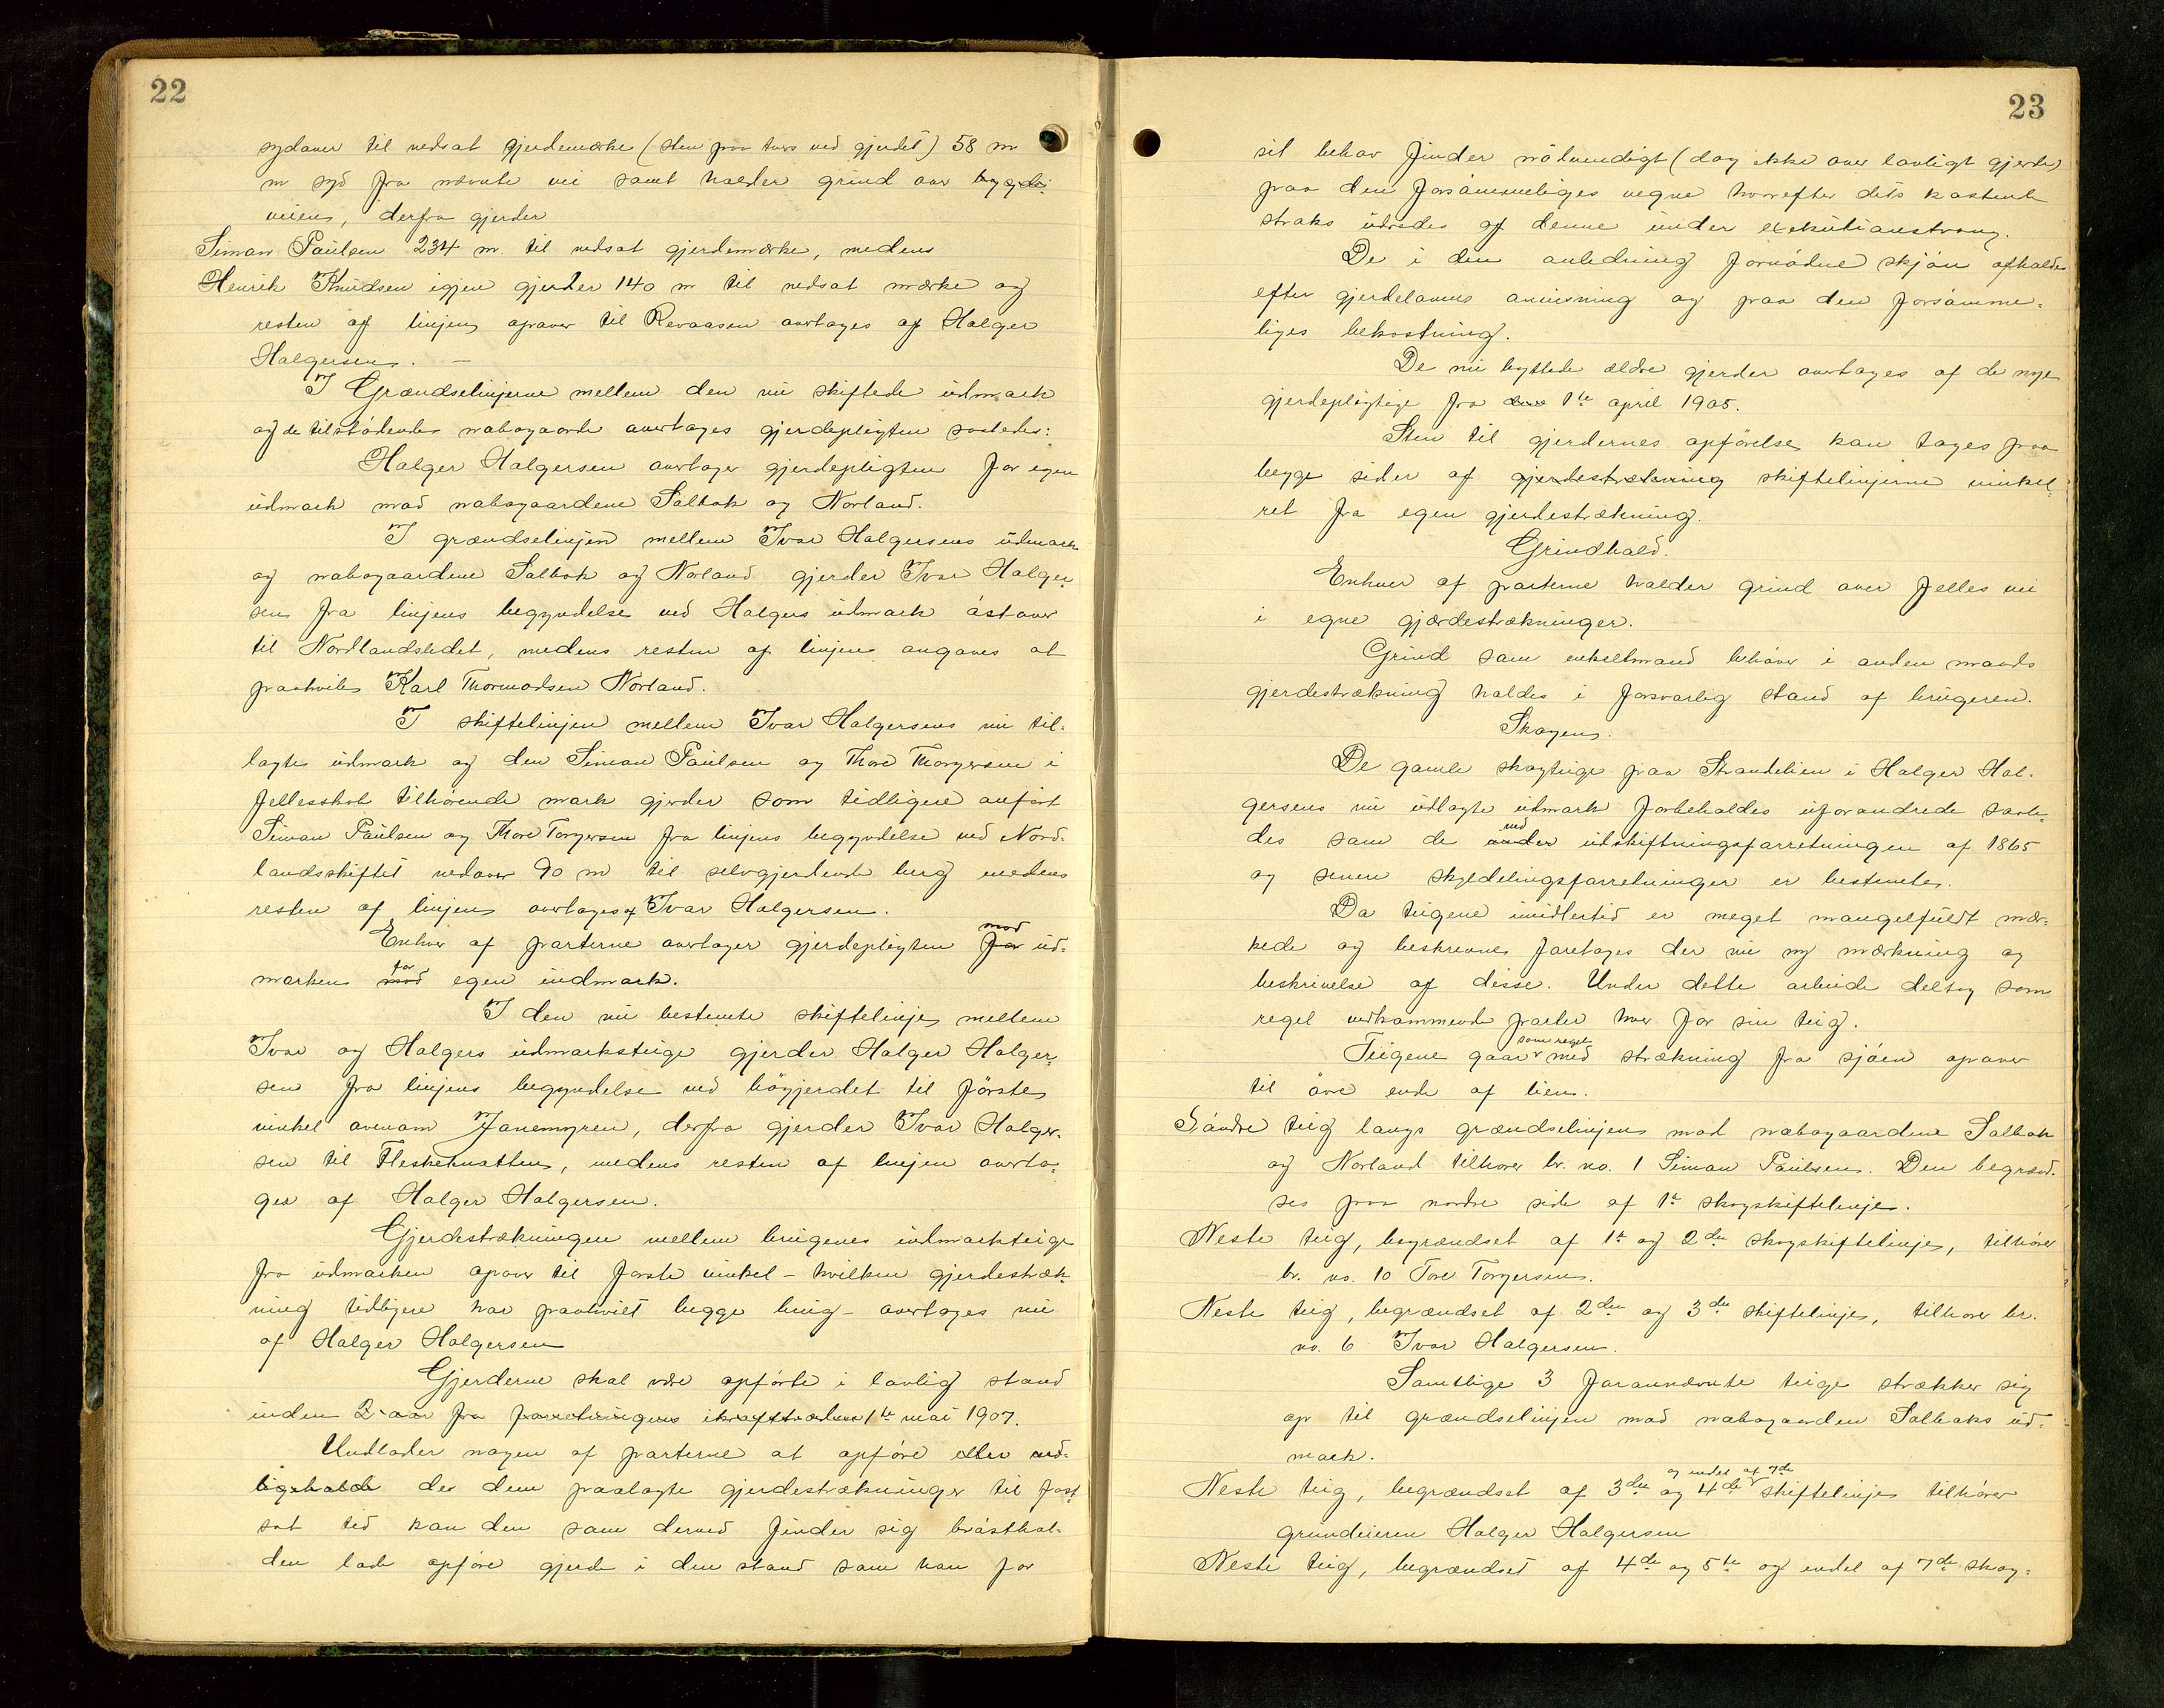 22
sydover til nedsat gjerdemærke (sten paa tvers ved gjerdet) 58 m
m syd fra nævnte vei samt holder grind over bygde-
veien, derfra gjerder
Simon Paulsen 234 m. til nedsat gjerdemærke, medens
Henrik Knudsen igjen gjerder 140 m til nedsat mærke og
resten af linjen opover til Revaasen overtages af Holger
Holgersen. —
I Grændselinjerne mellem den nu skiftede udmark
og de tilstødende nabogaarde overtages gjerdepligten saaledes:
Holger Holgersen overtager gjerdepligten for egen
udmark mod nabogaardene Salbok og Norland.
I grændselinjen mellem Ivar Holgersens udmark
og nabogaardene Salbok og Norland gjerder Ivar Holger-
sen fra linjens begyndelse ved Holgers udmark østover
til Nordlandsledet, medens resten af linjen angaves at
paahvile Karl Thormodsen Norland.
I skiftelinjen mellem Ivar Holgersens nu til-
lagte udmark og den Simon Paulsen og Thore Thorgersen i
fellesskab tilhørende mark gjerder som tidligere anført
Simon Paulsen og Thore Torgersen fra linjens begyndelse ved Nord-
landsskiftet nedover 90 m til selvgjerdende berg medens
resten af linjen overtages af Ivar Holgersen.
mod
Enhver af parterne overtager gjerdepligten for ud-
for
marken mod egen indmark.
I den nu bestemte skiftelinje mellem
Ivar og Holgers udmarksteige gjerder Holger Holger-
sen fra linjens begyndelse ved bøgjerdet til første
vinkel ovenom Janemyren, derfra gjerder Ivar Holger-
sen til Fleskeknatten, medens resten af linjen overta-
ges af Holger Holgersen.
Gjerdestrækningen mellem brugenes indmarkteige
fra udmarken opover til første vinkel – hvilken gjerdestræk-
ning tidligere har paahvilt begge brug – overtages nu
af Holger Holgersen
Gjerderne skal være opførte i lovlig stand
inden 2 aar fra forretningens ikrafttræden 1te mai 1907.
Undlader nogen af parterne at opføre eller ved-
ligeholde de dem paalagte gjerdestrækninger til fast-
sat tid kan den som derved finder sig brøsthol-
den lade opføre gjerde i den stand som han for
23
sit behov finder nødvendigt (dog ikke over lovligt gjerde)
paa den forsømmeliges vegne hvorefter dets kostende
straks udredes af denne under exekutionstvang.
De i den anledning fornødne skjøn afholdes
efter gjerdelovens anvisning og paa den forsømme-
liges bekostning.
De nu byttede ældre gjerder overtages af de nye
gjerdepligtige fra den 1te april 1905.
Sten til gjerdernes opførelse kan tages paa
begge sider af gjerdestrækning skiftelinjerne vinkel-
ret fra egen gjerdestrækning.
Grindhold.
Enhver af parterne holder grind over felles vei
i egne gjærdestrækninger.
Grind som enkeltmand behøver i anden mands
gjerdestrækning holdes i forsvarlig stand af brugeren.
Skogen.
De gamle skogteige paa Strandelien i Holger Hol-
gersens nu udlagte udmark forbeholdes uforandrede saale-
ved
des som de under udskiftningsforretningen af 1865
og senere skyldelingsforretninger er bestemte.
Da teigene imidlertid er meget mangelfuldt mær-
kede og beskrevne foretages der nu ny mærkning og
beskrivelse af disse. Under dette arbeide deltog som
regel vedkommende parter hver for sin teig.
som regel
Teigene gaar med strækning fra sjøen opover
til øvre ende af lien.
Søndre teig langs grændselinjen mod nabogaardene Salbok
og Norland tilhører br. no. 1 Simon Paulsen. Den begrænd-
ses paa nordre side af 1ste skogskiftelinje.
Neste teig, begrændset af 1ste og 2den skogskiftelinje, tilhører
br. no. 10 Tore Torgersen.
Neste teig, begrændset af 2den og 3die skiftelinje, tilhører br.
no. 6 Ivar Holgersen.
Samtlige 3 forannævnte teige strækker sig
op til grændselinjen mod nabogaarden Salboks ud-
mark.
og endel af 7de
Neste teig, begrændset af 3die og 4de skiftelinje tilhører
grundeieren Holger Holgersen
Neste teig, begrændset af 4de og 5te og endel af 7de skog-